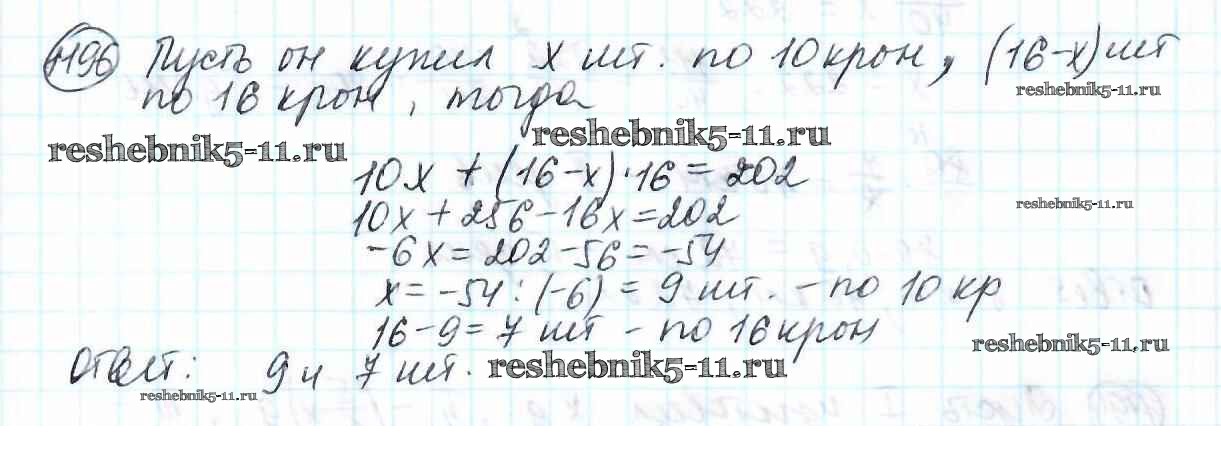 1196 Пусть он купил x шт. по 10 крон, (16-x) шт
по 16 крон, тогда
reshebnik5-11.ru
reshebnik5-11.ru
reshebnik5-11.ru
10x + (16-x)·16 = 202
10x + 256 - 16x = 202
reshebnik5-11.ru
-6x = 202 - 56 = -54
x = -54 : (-6) = 9 шт. - по 10 кр
16 - 9 = 7 шт - по 16 крон
reshebnik5-11.ru
Ответ: 9 и 7 шт.
reshebnik5-11.ru
reshebnik5-11.ru